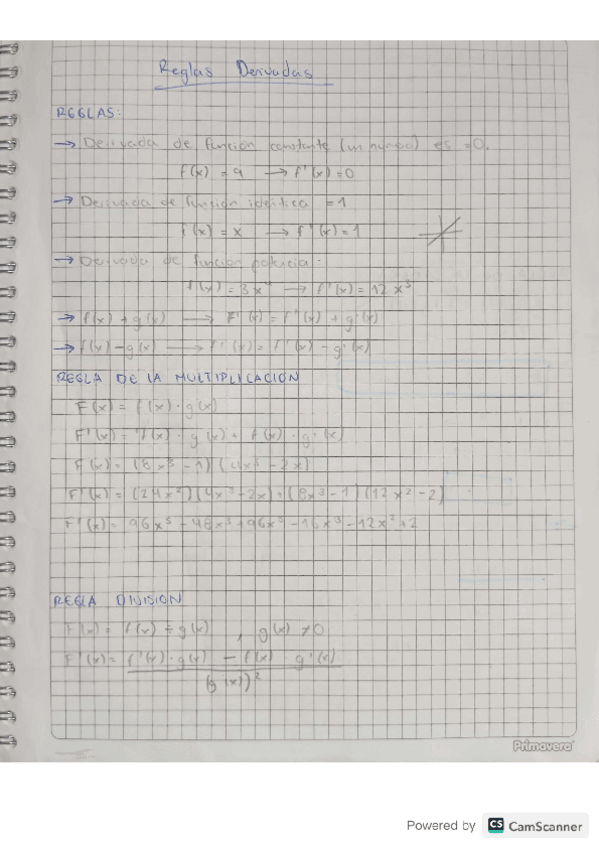 Reglas Derivadas
REGLAS:
→ Derivada de función constante (un numero) es =0.
f(x) = 9 → f'(x) = 0
→ Derivada de función identica = 1
f(x) = x → f'(x) = 1
→ Derivada de función potencia:
f(x) = 3x⁴ → f'(x) = 12x³
→ f(x) + g(x) → F'(x) = f'(x) + g'(x)
→ f(x) - g(x) → f'(x) = f'(x) - g'(x)
REGLA DE LA MULTIPLICACION
F(x) = f(x) · g(x)
F'(x) = f(x) · g(x) + f(x) · g'(x)
F(x) = (8x³ - 1)(4x³ - 2x)
F'(x) = (24x²)(4x³ - 2x) + (8x³ - 1)(12x² - 2)
F'(x) = 96x⁵ - 48x³ + 96x⁵ - 16x³ - 12x² + 2
REGLA DIVISION
F(x) = f(x) ÷ g(x) , g(x) ≠ 0
F'(x) = f'(x) · g(x) - f(x) · g'(x)
(g(x))²
Primavera
Powered by CS CamScanner